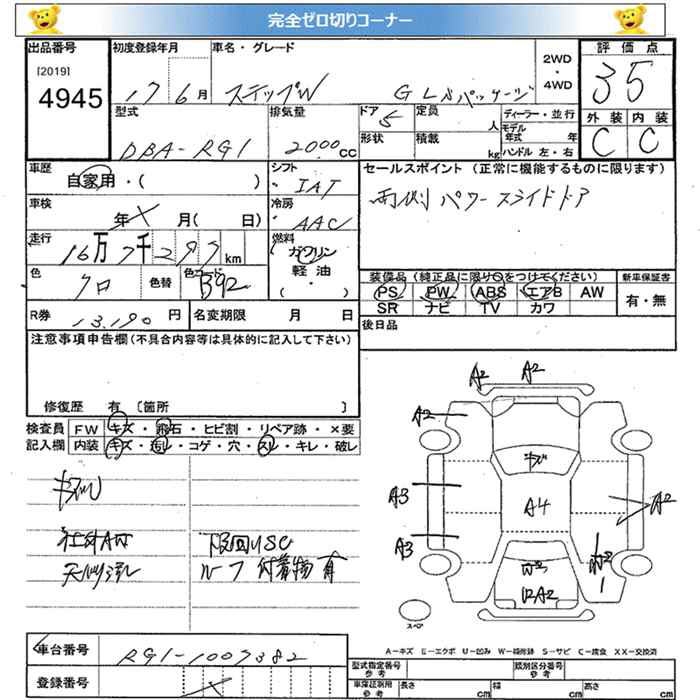 完全ゼロ切りコーナー
出品番号 初度登録年月 車名・グレード 2WD・4WD 評価点
[2019]
4945
17 6月 ステップW G Lパッケージ 3.5
型式 排気量 ドア 定員 人 ディーラー・並行 外装 内装
DBA-RG1 2000cc 5 形状 積載 kg モデル年式 年 C C
ハンドル 左・右
車歴 シフト セールスポイント(正常に機能するものに限ります)
自家用・( ) IAT 両側パワースライドドア
車検 冷房
年 月( 日) AAC
走行 燃料
16万7千299km ガソリン
軽油
色 色替 色コード ( ・ )
クロ B92
装備品(純正品に限り○をつけてください) 新車保証書
PS PW ABS エアB AW 有・無
SR ナビ TV カワ
R券 13,190円 名変期限 月 日 後日品
注意事項申告欄(不具合内容等は具体的に記入して下さい)
修復歴 有 [箇所 ]
検査員 FW キズ・飛石・ヒビ割・リペア跡・×要
記入欄 内装 キズ・汚レ・コゲ・穴・スレ・キレ・破レ
キズ凹
社外AW 下回りSC
ルーフ付着物有
A2 A2
A2
キズ
A3 A4 A2
A3
A2
スペア
A-キズ E-エクボ U-凹み W-補修跡 S-サビ C-腐食 XX-交換済
車台番号 RG1-1007382
登録番号
型式指定番号 参考 類別区分番号 参考
車庫証明用 参考 長さ cm 幅 cm 高さ cm